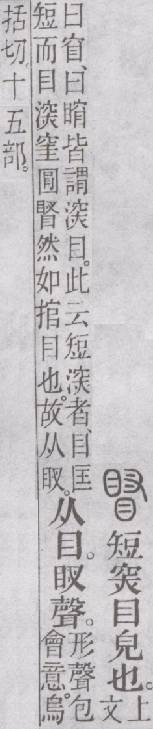 短突目皃也。上
文
曰窅、曰皆謂深目。此云短深者、目匡
短而目深窐圓然如捾目也。故从
从目。聲。
形聲包
會意。烏
括切。十五部。